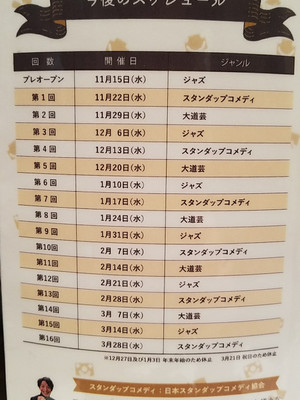 今後のスケジュール
回数 開催日 ジャンル
プレオープン 11月15日(水) ジャズ
第1回 11月22日(水) スタンダップコメディ
第2回 11月29日(水) 大道芸
第3回 12月 6日(水) ジャズ
第4回 12月13日(水) スタンダップコメディ
第5回 12月20日(水) 大道芸
第6回 1月10日(水) ジャズ
第7回 1月17日(水) スタンダップコメディ
第8回 1月24日(水) 大道芸
第9回 1月31日(水) ジャズ
第10回 2月 7日(水) スタンダップコメディ
第11回 2月14日(水) 大道芸
第12回 2月21日(水) ジャズ
第13回 2月28日(水) スタンダップコメディ
第14回 3月 7日(水) 大道芸
第15回 3月14日(水) ジャズ
第16回 3月28日(水) スタンダップコメディ
※12月27日及び1月3日 年末年始のため休止 3月21日 祝日のため休止
スタンダップコメディ:日本スタンダップコメディ協会